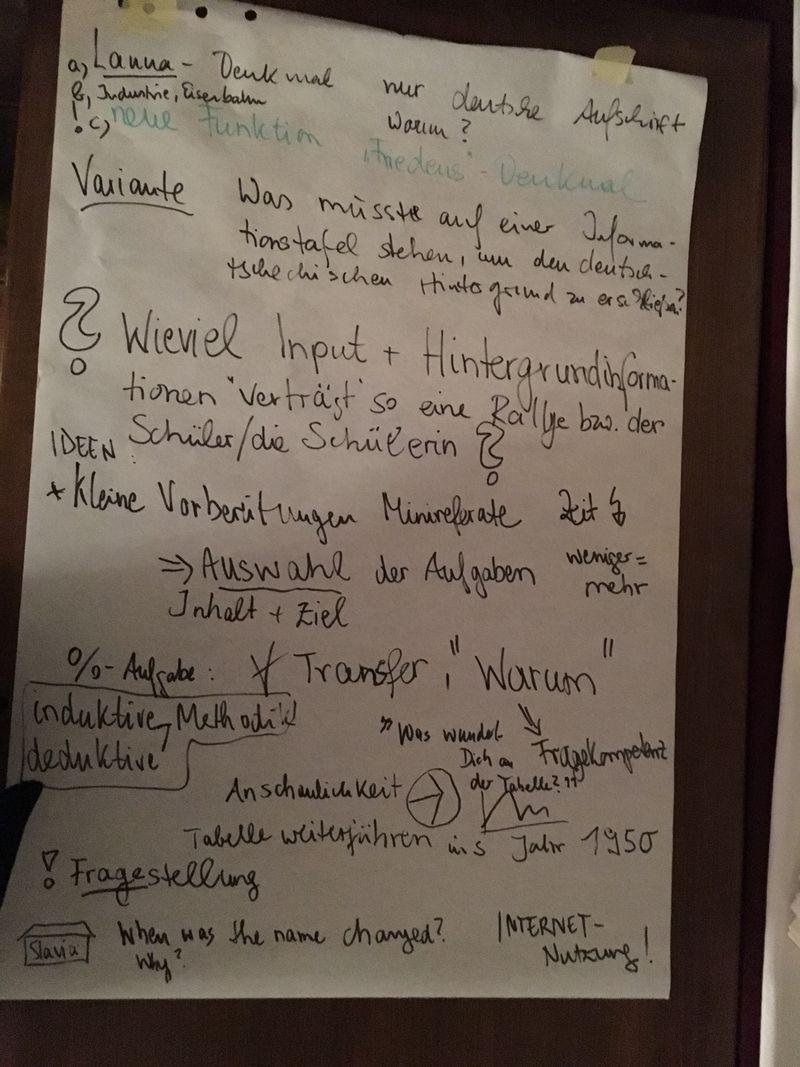 a) Lanna - Denkmal nur deutsche Aufschrift
b) Industrie, Eisenbahn Warum?
! c) neue Funktion "Friedens" - Denkmal
Variante Was müsste auf einer Informa-
tionstafel stehen, um den deutsch-
tschechischen Hintergrund zu erschließen?
? Wieviel Input + Hintergrundinforma-
tionen "verträgt" so eine Rallye bzw. der
Schüler/die Schülerin ?
IDEEN:
* Kleine Vorbereitungen Minireferate Zeit
⇒ Auswahl der Aufgaben weniger =
mehr
Inhalt + Ziel
%-Aufgabe: Transfer, "Warum"
induktive, Methodik
deduktive
"Was wundert
Dich an
der Tabelle?"
Fragekompetenz
Anschaulichkeit
Tabelle weiterführen ins Jahr 1950
! Fragestellung
Slavia When was the name changed?
Why?
INTERNET-
Nutzung!